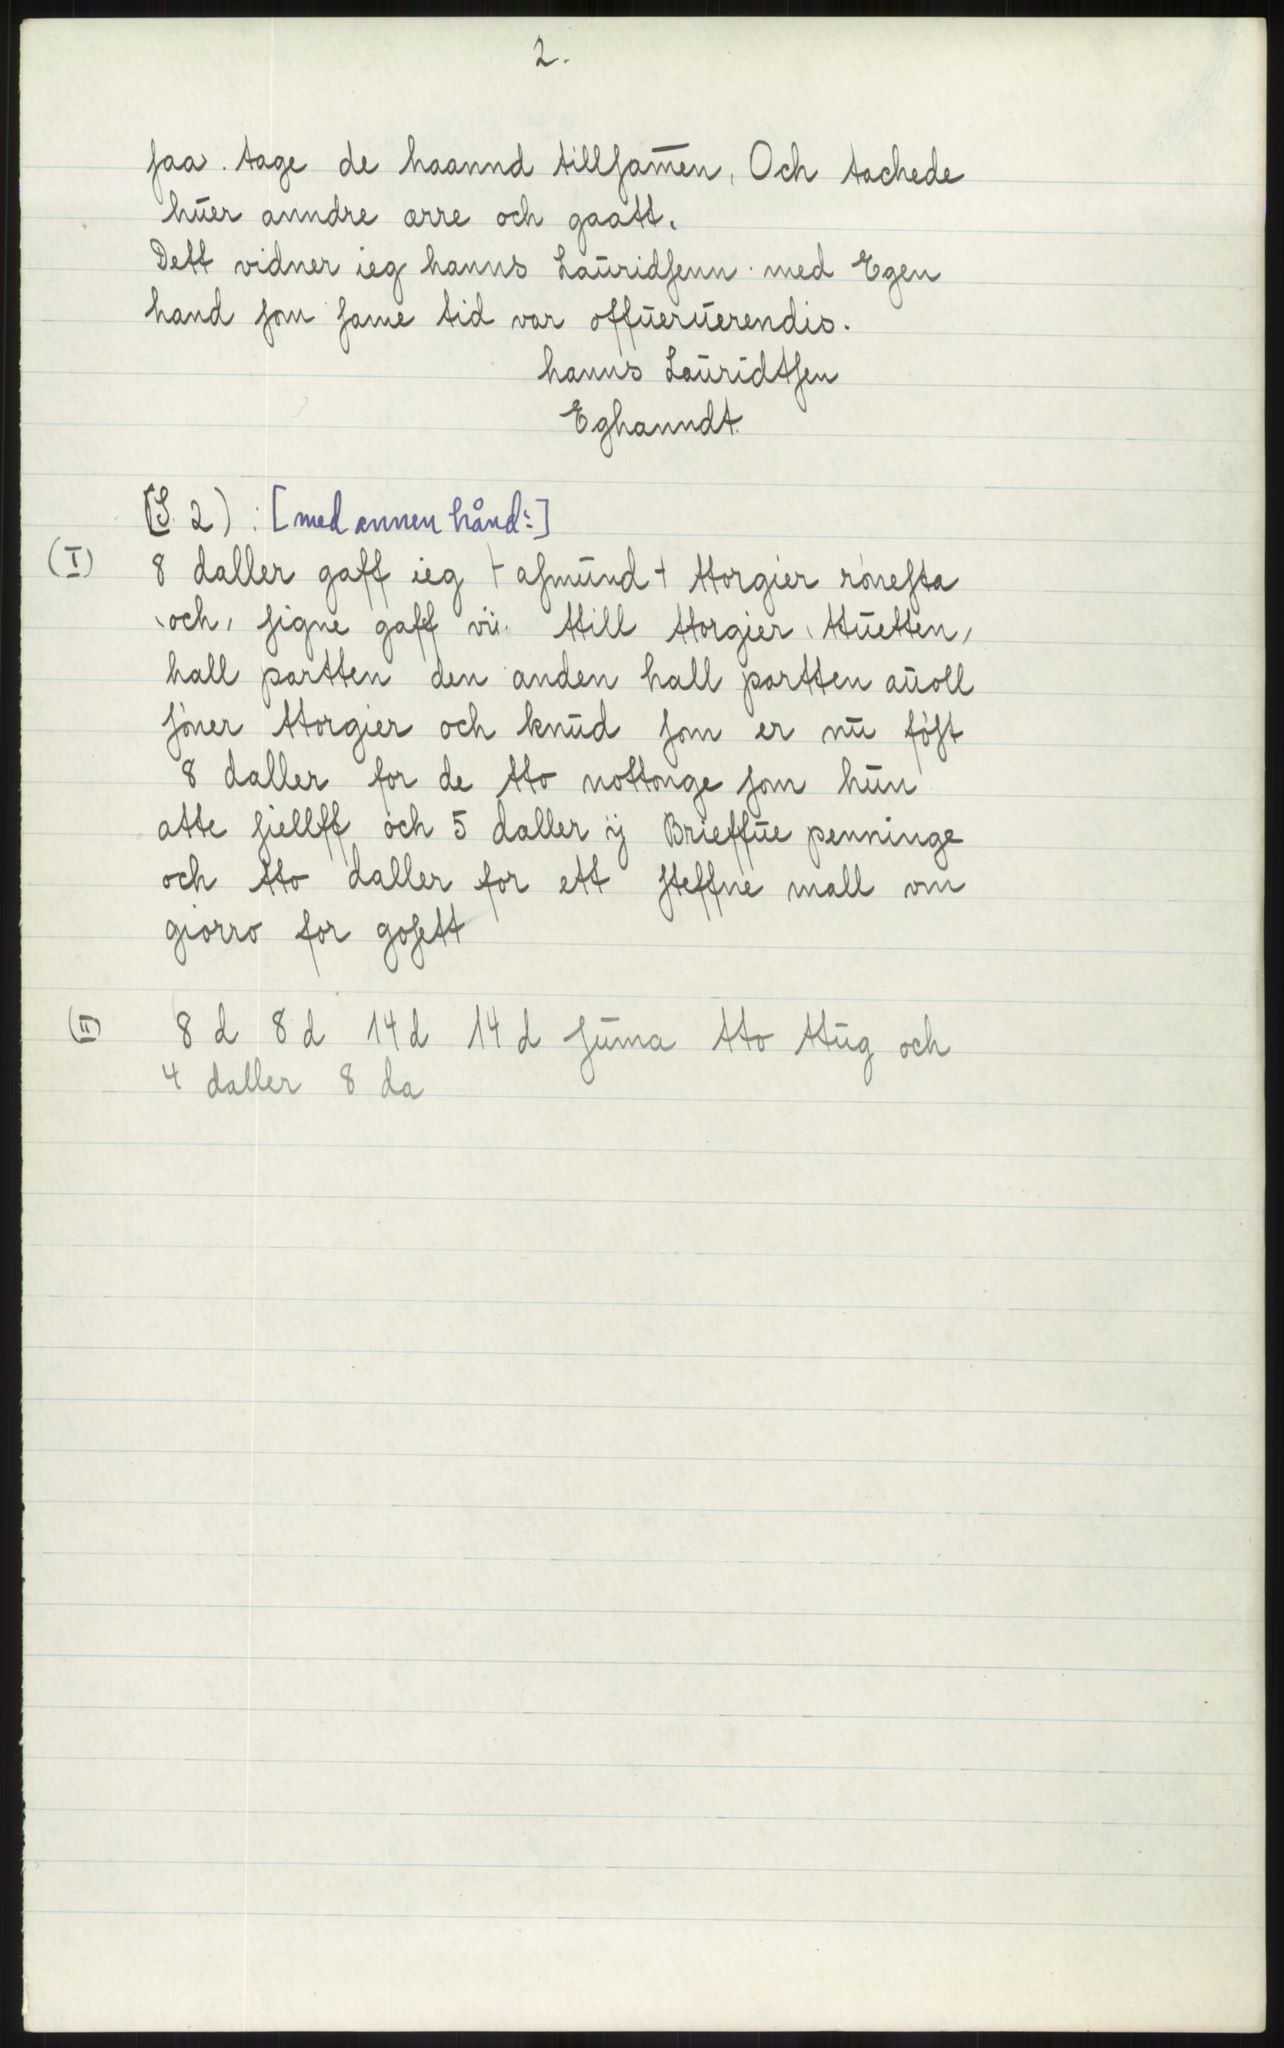 2.
ſaa. tage de haannd tillſam̅en, Och tachede
huer anndre ærre och gaatt.
Dett vidner ieg hanns Lauridſenn med Egen
hand ſom ſame tid var offueruerendis.
hanns Lauridtſen
Eghanndt.
(S. 2): [med annen hånd:]
(I) 8 daller gaff ieg + aſmund + ttorgier róneſta
och, ſigne gaff vii till ttorgier, ttuetten,
hall partten den anden hall partten auoll
ſóner ttorgier och knud ſom er nu fóſt
8 daller for de tto nottonge ſom hun
atte ſiellff och 5 daller ÿ Brieffue penninge
och tto daller for ett ſteffne mall om
giorro for goſett
(II) 8 d 8 d 14 d 14 d ſuma tto ttug och
4 daller 8 da